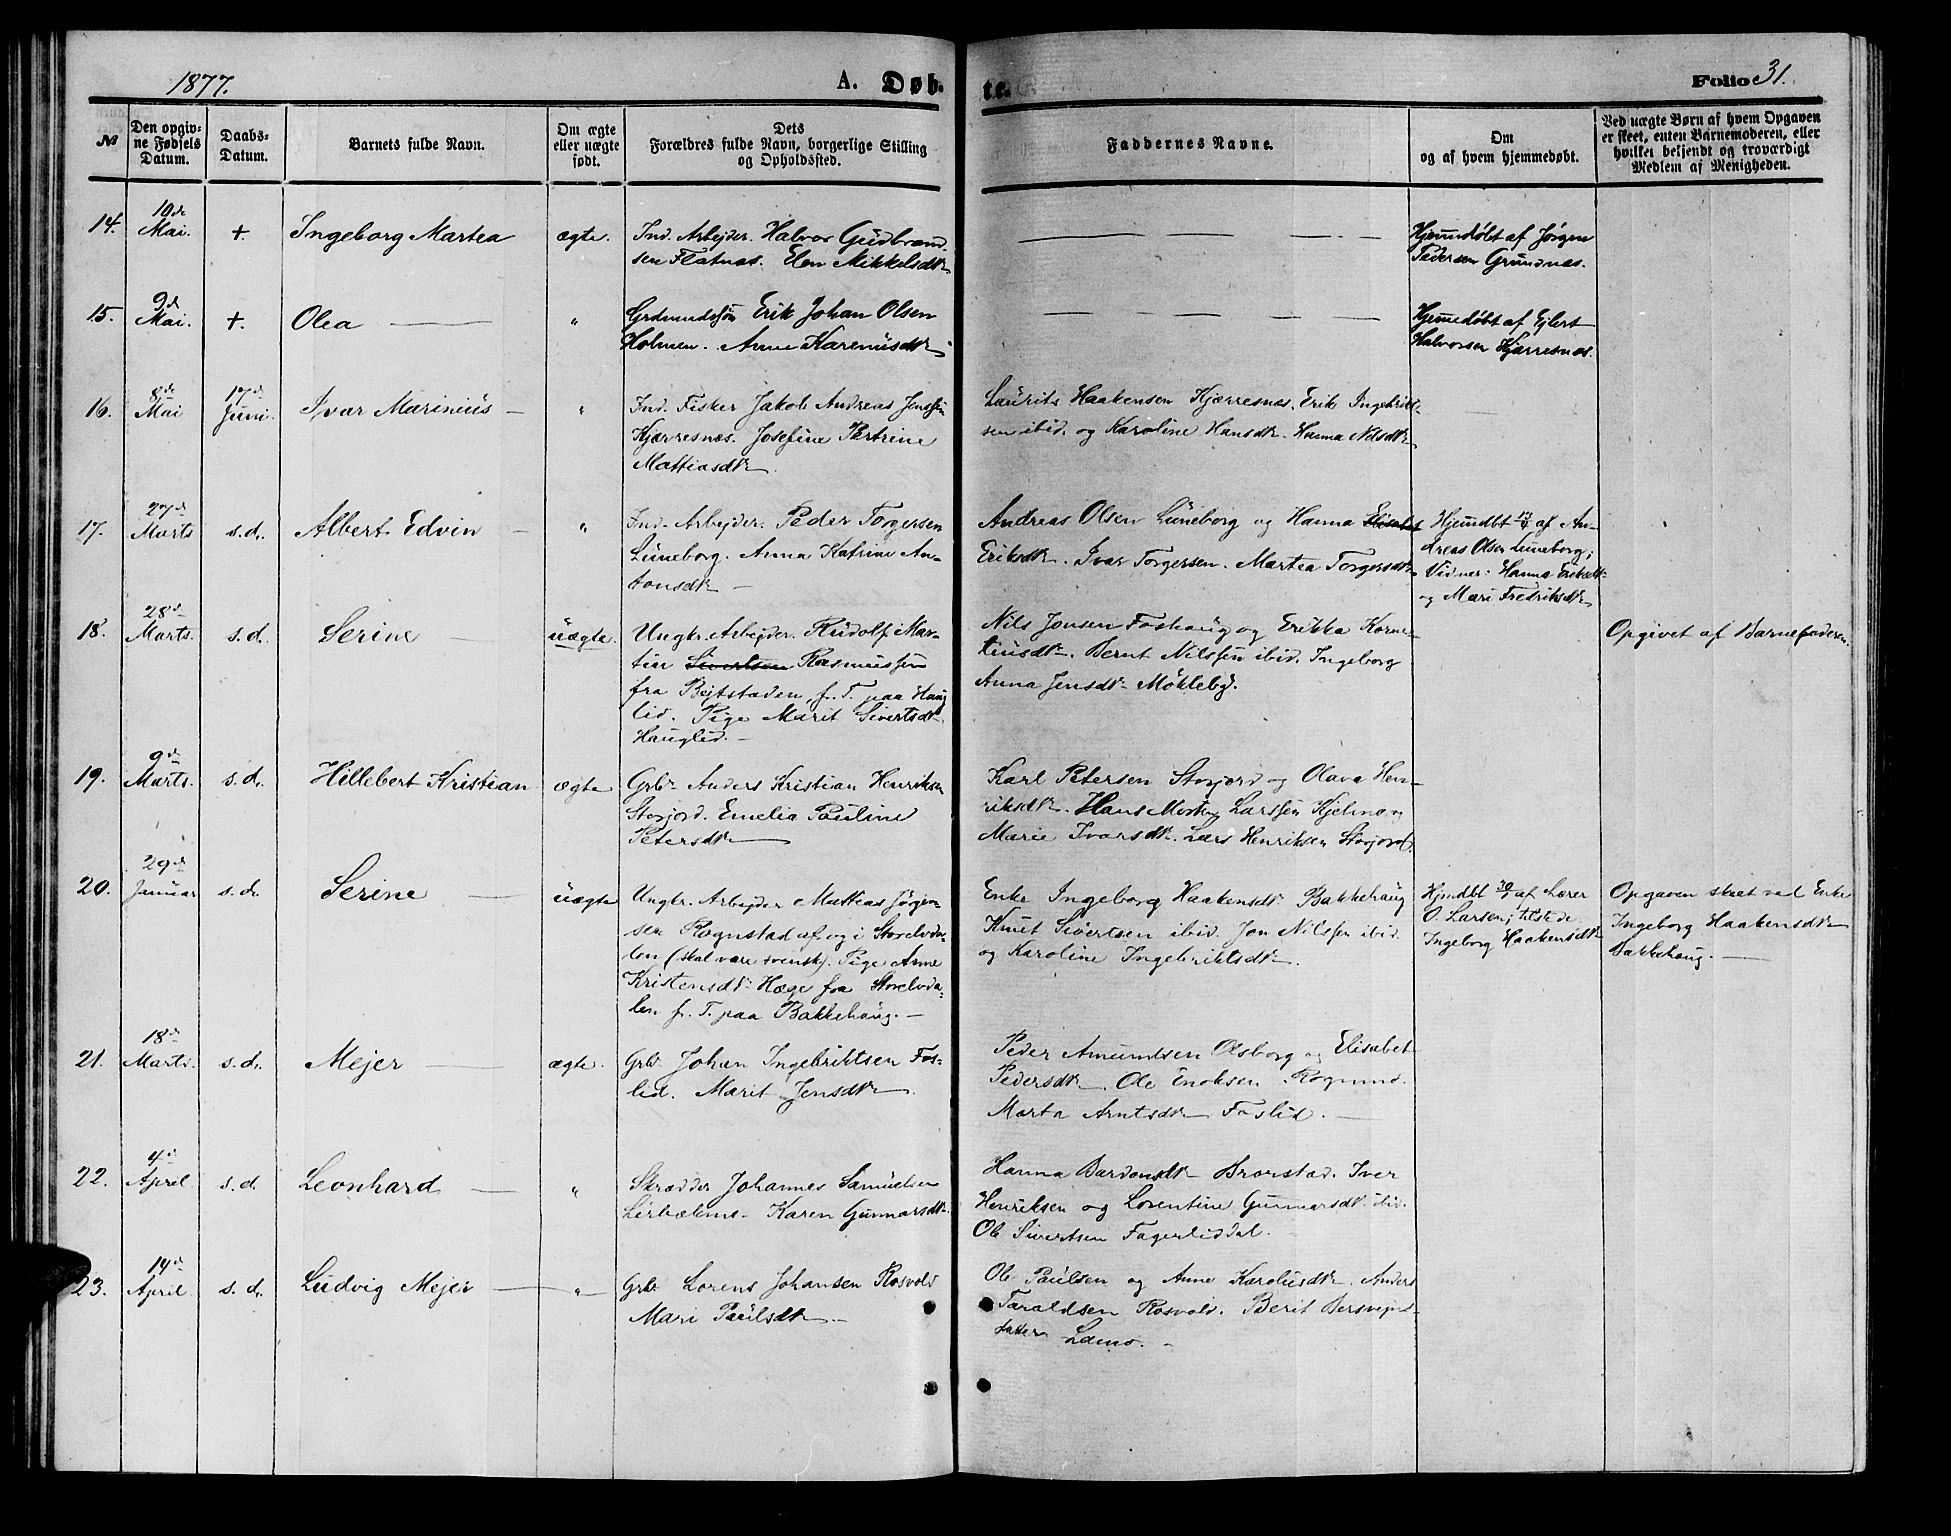 1877.
A. Døb-
te.
Folio 31.
№
Den opgiv-
ne Fødsels
Datum.
Daabs-
Datum.
Barnets fulde Navn.
Om ægte
eller uægte
født.
Dets
Forældres fulde Navn, borgerlige Stilling
og Opholdssted.
Faddernes Navne.
Om
og af hvem hjemmedøbt.
Ved uægte Børn af hvem Opgaven
er skeet, enten Barnemoderen, eller
hvilket bekjendt og troværdigt
Medlem af Menigheden.
14.
10de
Mai.
+.
Ingeborg Martea
ægte.
Ind. Arbejder. Halvor Gudbrand-
sen Flatnæs. Elen Mikkelsdtr
Hjemmdøbt af Jørgen
Pedersen Grundnæs.
15.
9de
Mai.
+.
Olea
"
Grdmandssøn Erik Johan Olsen
Holmen. Anne Kareniusdtr
Hjemmedøbt af Ejlert
Halvorsen Kjærresnæs.
16.
8de
Mai
17de
Juni.
Ivar Marinius
"
Ind. Fisker Jakob Andreas Jenssen
Kjærresnæs. Josefine Petrine
Mattiasdtr
Laurits Haakensen Kjærresnæs. Erik Ingebrikt-
sen ibid. og Karoline Hansdtr. Hanna Nilsdtr
17.
27de
Marts
s.d.
Albert Edvin
"
Ind. Arbejder. Peder Torgersen
Luneborg. Anna Katrine An-
tonsdtr
Andreas Olsen Luneborg og Hanna Elisabet
Eriksdtr. Ivar Torgersen. Martea Torgersdtr
Hjemdbt 13/4 af An-
dreas Olsen Luneborg;
Vidner: Hanna Eriksdtr
og Mari Fredriksdtr
18.
28de
Marts.
s.d.
Serine
uægte.
Ungkr. Arbejder. Rudolf Mar-
tin Sivertsen Rasmussen
fra Bejtstaden, f. T. paa Haug
lid. Pige Marit Sivertsdtr
Hauglid.
Nils Jonsen Foshaug og Erikka Korne-
liusdtr. Bernt Nilssen ibid. Ingeborg
Anna Jensdtr Mökleby.
Opgivet af Barnefaderen.
19.
9de
Marts.
s.d.
Hillebert Kristian
ægte
Grbr Anders Kristian Henriksen
Storjord. Emelia Pauline
Petersdtr
Karl Petersen Storjord og Olava Hen-
riksdtr. Hans Morten Larssen Kjelmo og
Marie Ivarsdtr. Lars Henriksen Storjord.
20.
29de
Januar
s.d.
Serine
uægte
Ungkr. Arbejder Mattias Jørgen-
sen Rognstad af og i Storelvda-
len (skal være svensk). Pige Anne
Kristensdtr Hæge fra Storelvda-
len f. T. paa Bakkehaug.
Enke Ingeborg Haakensdtr Bakkehaug
Knut Sivertsen ibid. Jon Nilssen ibid.
og Karoline Ingebriktsdtr.
Hjmdbt 30/1 af Lærer
O. Larsen; tilstede
Ingeborg Haakensdtr
Opgaven skeet ved Enke
Ingeborg Haakensdtr
Bakkehaug.
21.
18de
Marts.
s.d.
Mejer
ægte.
Grbr Johan Ingebriktsen Fos-
lid. Marit Jensdtr.
Peder Amundsen Olsborg og Elisabet
Pedersdtr. Ole Enoksen Rognmo.
Marta Arntsdtr Foslid.
22.
4de
April
s.d.
Leonhard
"
Skrædder Johannes Samuelsen
Karen Gunnarsdtr.
Hanna Bardonsdtr Brorstad. Iver
Henriksen og Lorentine Gunnarsdtr ibid.
Ole Sivertsen Fagerliddal.
23.
14de
April
s.d.
Ludvig Mejer
"
Grbr Lorens Johansen Rosvold
Mari Paulsdtr.
Ole Paulsen og Anne Karolusdtr. Anders
Taraldsen Rosvold. Berit Bersvejns-
datter Lamo.